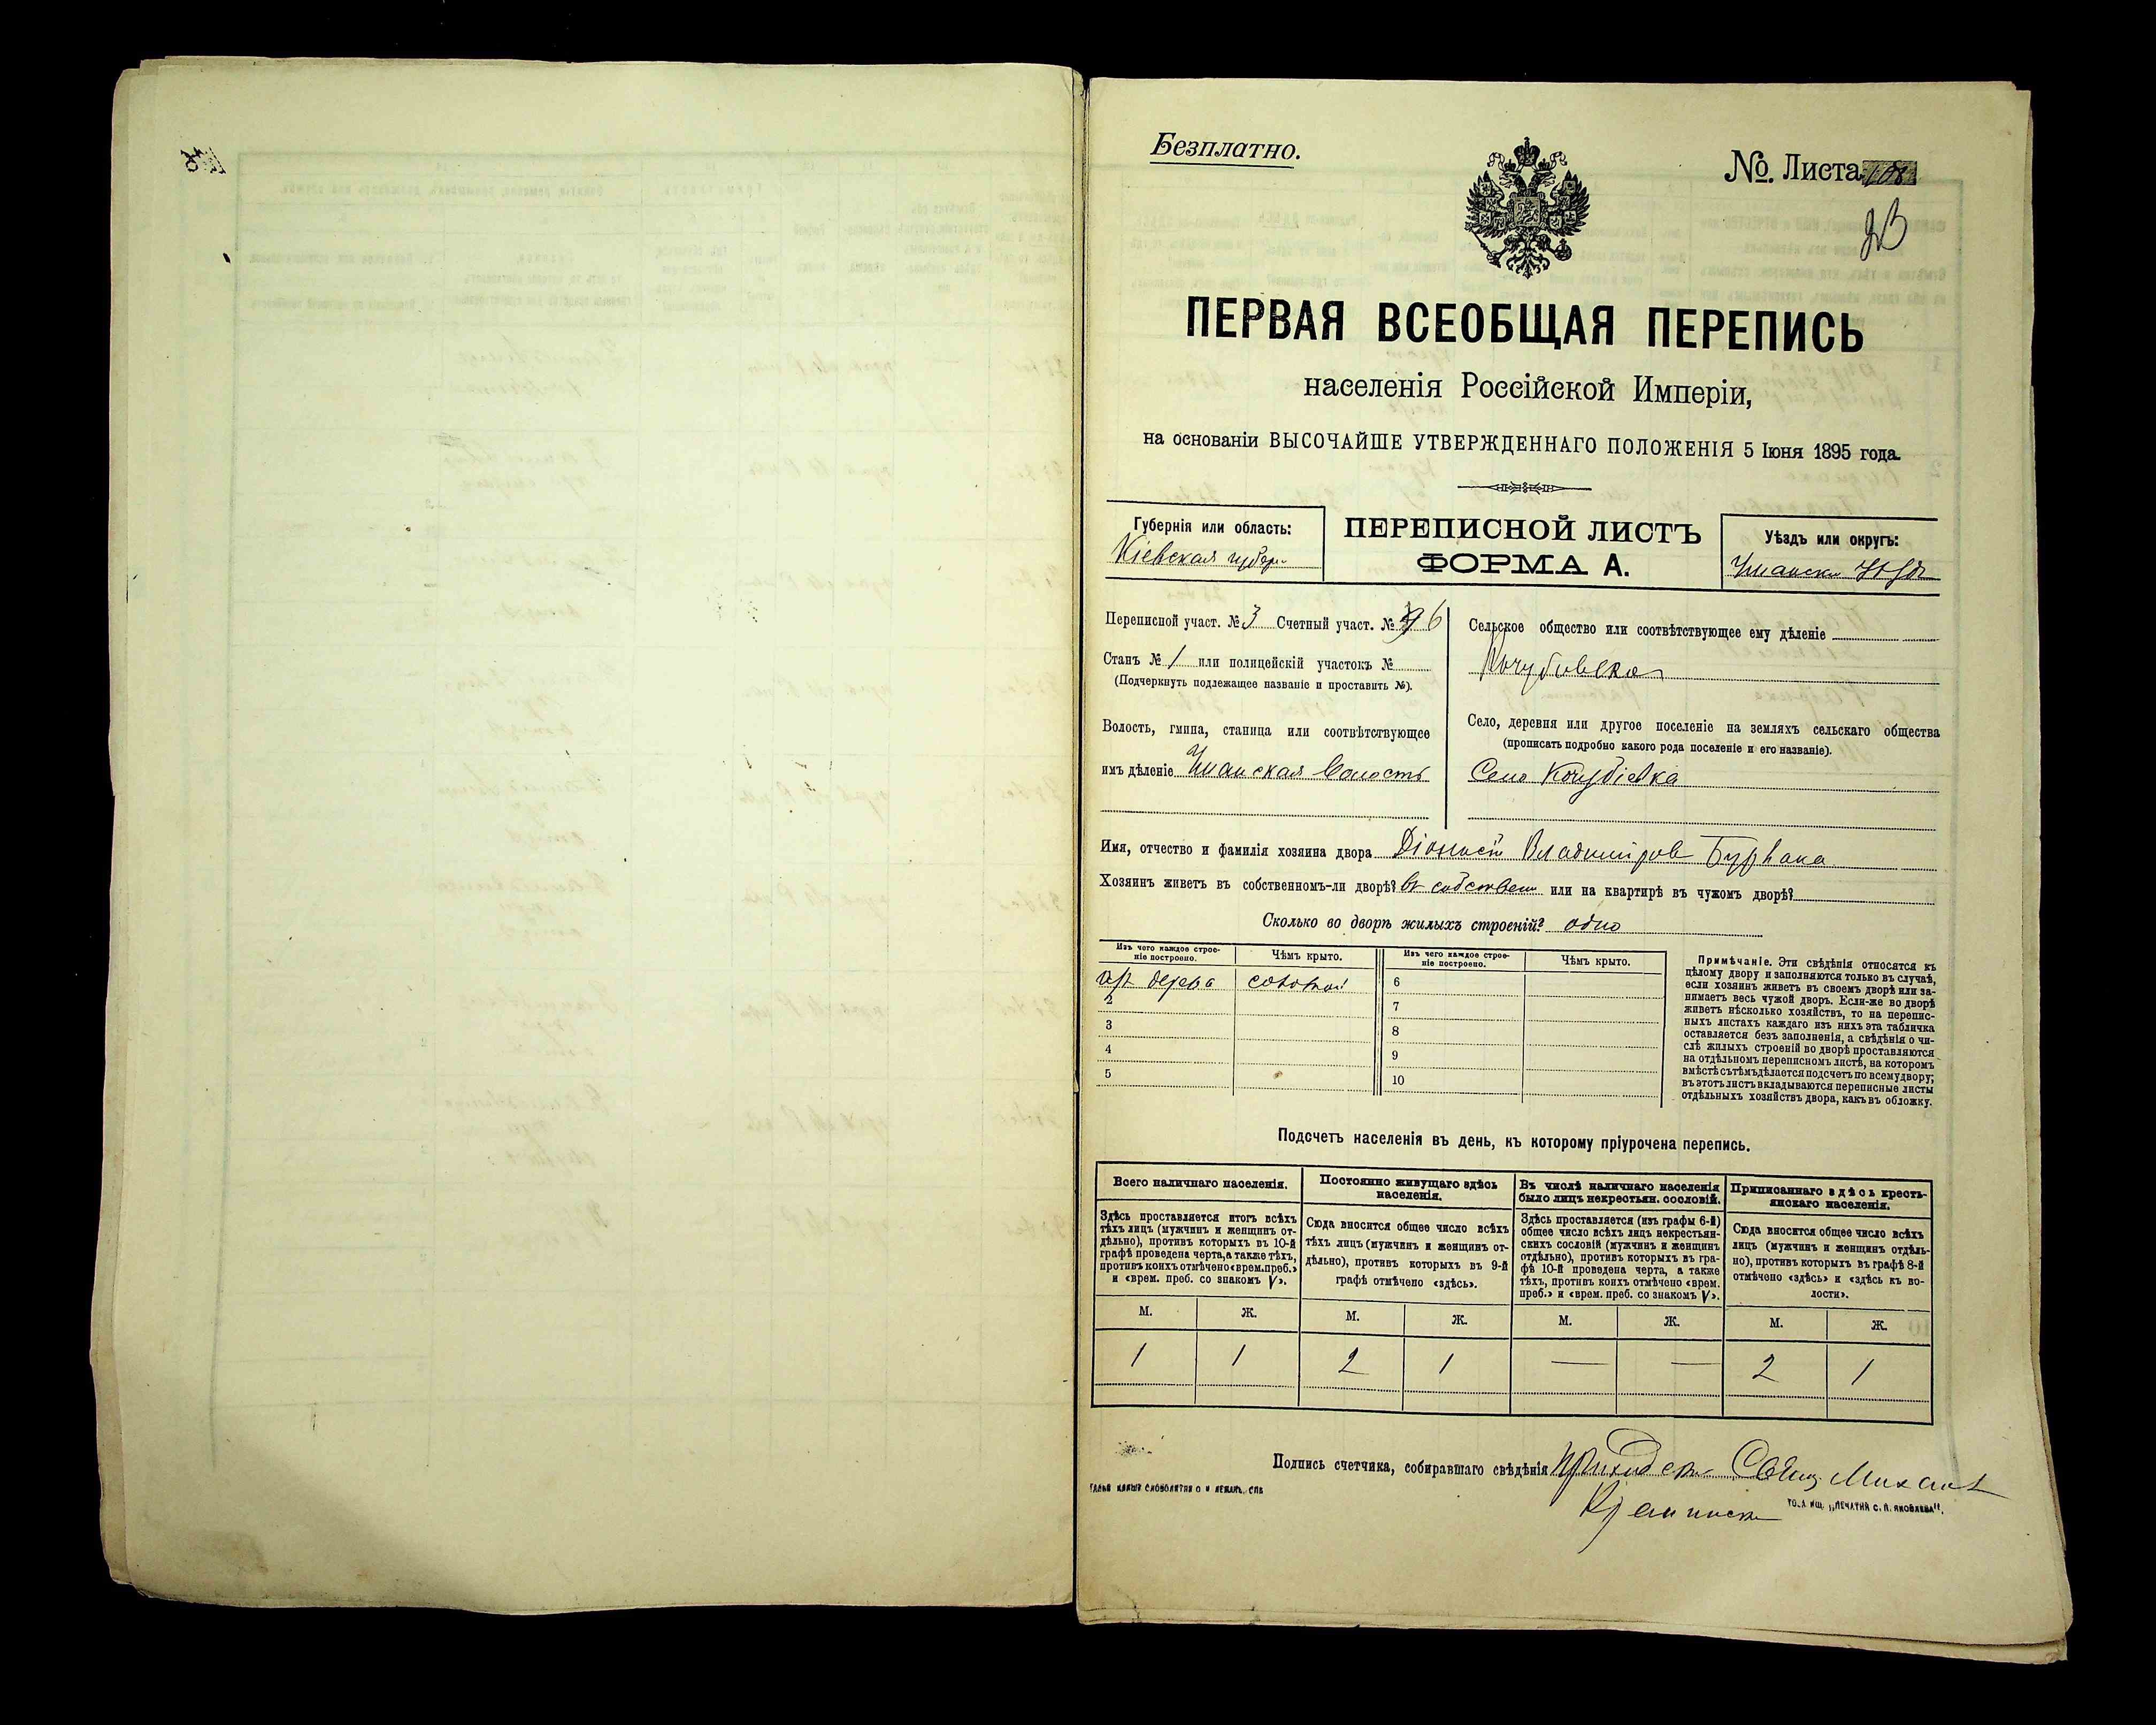 Безплатно.
№. Листа
ПЕРВАЯ ВСЕОБЩАЯ ПЕРЕПИСЬ
населенія Россійской Имперіи,
на основаніи ВЫСОЧАЙШЕ УТВЕРЖДЕННАГО ПОЛОЖЕНІЯ 5 Іюня 1895 года.
Губернія или область:
Кіевская губер.
ПЕРЕПИСНОЙ ЛИСТЪ
ФОРМА А.
Уѣздъ или округъ:
Переписной участ. № 3 Счетный участ. № 6
Станъ № 1 или полицейскій участокъ №
(Подчеркнуть подлежащее названіе и проставить №).
Волость, гмина, станица или соотвѣтствующее
имъ дѣленіе Уманская Волость
Сельское общество или соотвѣтствующее ему дѣленіе
Село, деревня или другое поселеніе на земляхъ сельскаго общества
(прописать подробно какого рода поселеніе и его названіе).
Село Кочубіевка
Имя, отчество и фамилія хозяина двора Діонисій Владиміров
Хозяинъ живетъ въ собственномъ-ли дворѣ? въ собствен или на квартирѣ въ чужомъ дворѣ?
Сколько во дворѣ жилыхъ строеній? одно
Изъ чего каждое строе-
ніе построено.
Чѣмъ крыто.
Изъ чего каждое строе-
ніе построено.
Чѣмъ крыто.
дерева соломой 6
2 7
3 8
4 9
5 10
Примѣчаніе. Эти свѣдѣнія относятся къ
цѣлому двору и заполняются только въ случаѣ,
если хозяинъ живетъ въ своемъ дворѣ или за-
нимаетъ весь чужой дворъ. Если-же во дворѣ
живетъ нѣсколько хозяйствъ, то на перепис-
ныхъ листахъ каждаго изъ нихъ эта табличка
оставляется безъ заполненія, а свѣдѣнія о чи-
слѣ жилыхъ строеній во дворѣ проставляются
на отдѣльномъ переписномъ листѣ, на которомъ
вмѣстѣ съ тѣмъ дѣлается подсчетъ по всему двору;
въ этотъ листъ вкладываются переписные листы
отдѣльныхъ хозяйствъ двора, какъ въ обложку.
Подсчетъ населенія въ день, къ которому пріурочена перепись.
Всего наличнаго населенія.
Здѣсь проставляется итогъ всѣхъ
тѣхъ лицъ (мужчинъ и женщинъ от-
дѣльно), противъ которыхъ въ 10-й
графѣ проведена черта, а также тѣхъ,
противъ коихъ отмѣчено «врем. преб.»
и «врем. преб. со знакомъ V».
Постоянно живущаго здѣсь
населенія.
Сюда вносится общее число всѣхъ
тѣхъ лицъ (мужчинъ и женщинъ от-
дѣльно), противъ которыхъ въ 9-й
графѣ отмѣчено «здѣсь».
Въ числѣ наличнаго населенія
было лицъ некрестьян. сословій.
Здѣсь проставляется (изъ графы 6-й)
общее число всѣхъ лицъ некрестьян-
скихъ сословій (мужчинъ и женщинъ
отдѣльно), противъ которыхъ въ гра-
фѣ 10-й проведена черта, а также
тѣхъ, противъ коихъ отмѣчено «врем.
преб.» и «врем. преб. со знакомъ V».
Приписаннаго здѣсь кресть-
янскаго населенія.
Сюда вносится общее число всѣхъ
лицъ (мужчинъ и женщинъ отдѣль-
но), противъ которыхъ въ графѣ 8-й
отмѣчено «здѣсь» и «здѣсь къ во-
лости».
М. Ж. М. Ж. М. Ж. М. Ж.
1 1 2 1 — — 2 1
Подпись счетчика, собиравшаго свѣдѣнія